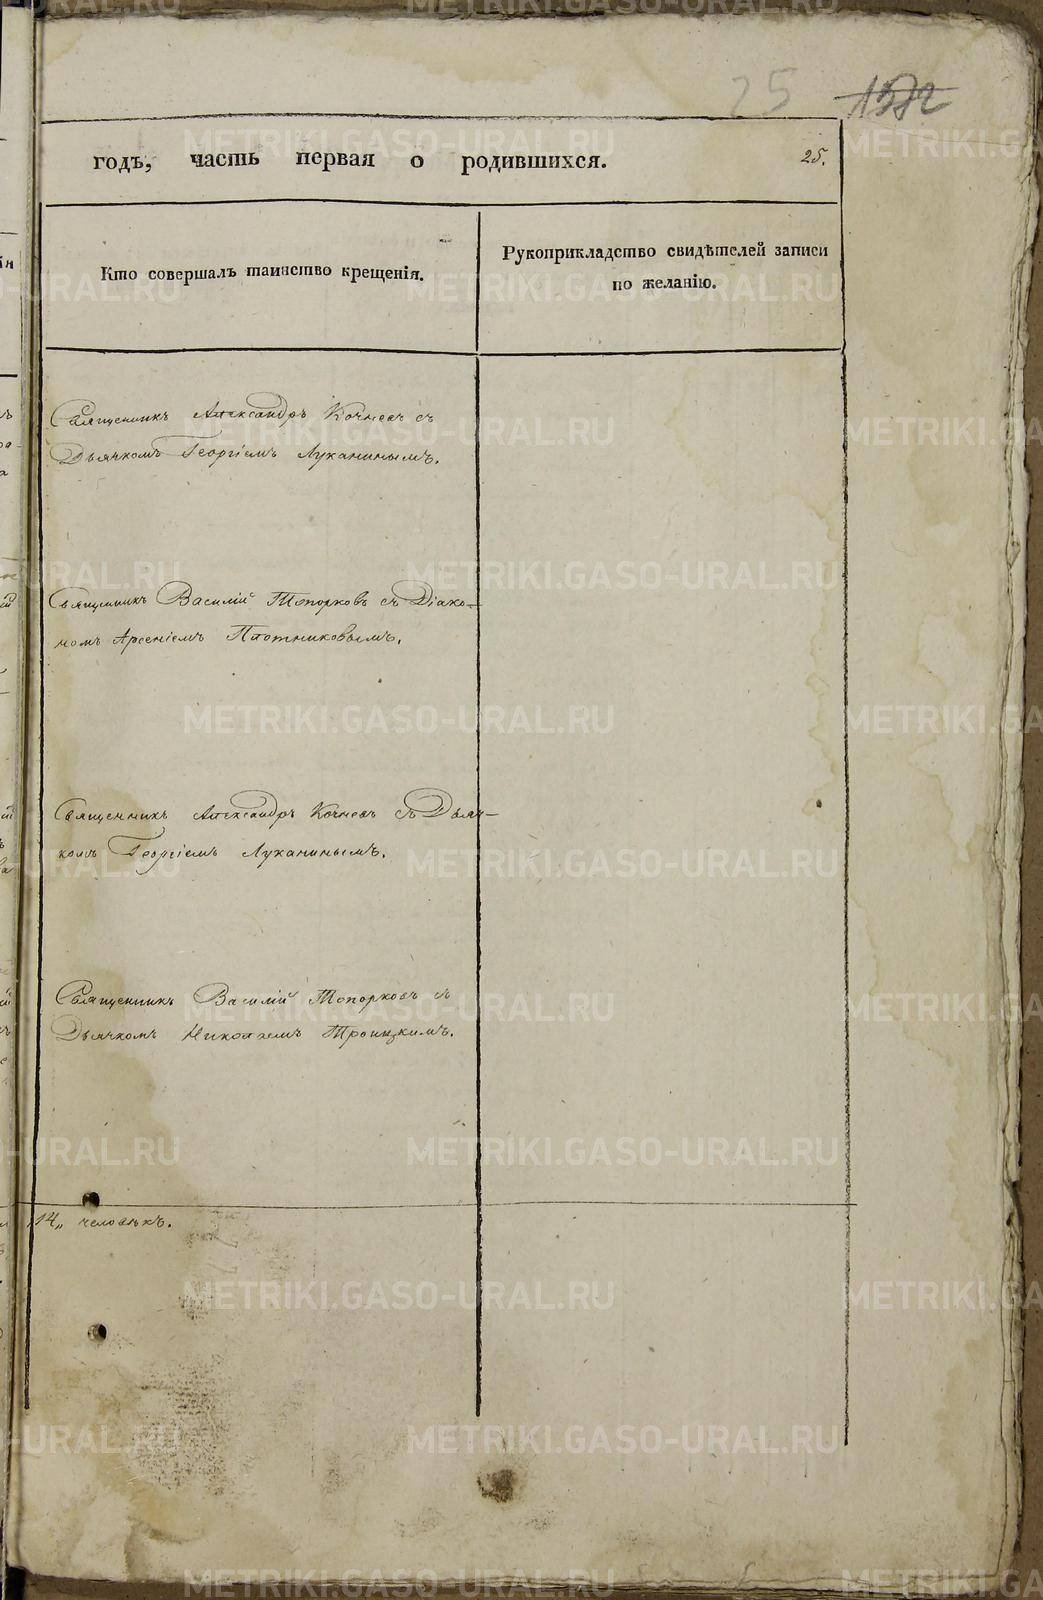 25 1572
годъ, часть первая о родившихся. 25.
Кто совершалъ таинство крещенія.
Рукоприкладство свидѣтелей записи
по желанію.
Священникъ Александръ Кочневъ съ
Дьячкомъ Георгіемъ Луканинымъ.
Священникъ Василій Топорковъ съ Діако-
номъ Арсеніемъ Плотниковымъ.
Священникъ Александръ Кочневъ съ Дьяч-
комъ Георгіемъ Луканинымъ.
Священникъ Василій Топорковъ съ
Дьячкомъ Николаемъ Троицкимъ.
14„ человѣкъ.
METRIKI.GASO-URAL.RU